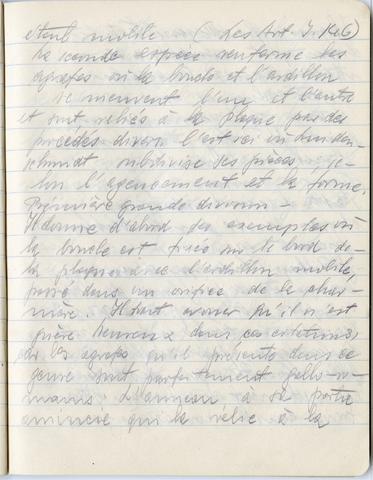 étant mobile ( des Art. I. 146)
La seconde espèce renferme les
agrafes où la boucle et l'ardillon
se meuvent l'un et l'autre
et sont reliés à la plaque par des
procédés divers. C'est ici
schmidt subdivise ses pièces, se-
lon l'agencement et la forme.
Première grande division –
Il donne d'abord des exemples où
la boucle est fixée sur le bord de
la plaque avec l'ardillon mobile,
passé dans un orifice de la char-
nière. Il faut avouer qu'il n'est
guère heureux dans ces
les agrafes qu'il présente dans ce
genre sont parfaitement gallo-ro-
maines. L'anneau a sa partie
amincie qui la relie à la